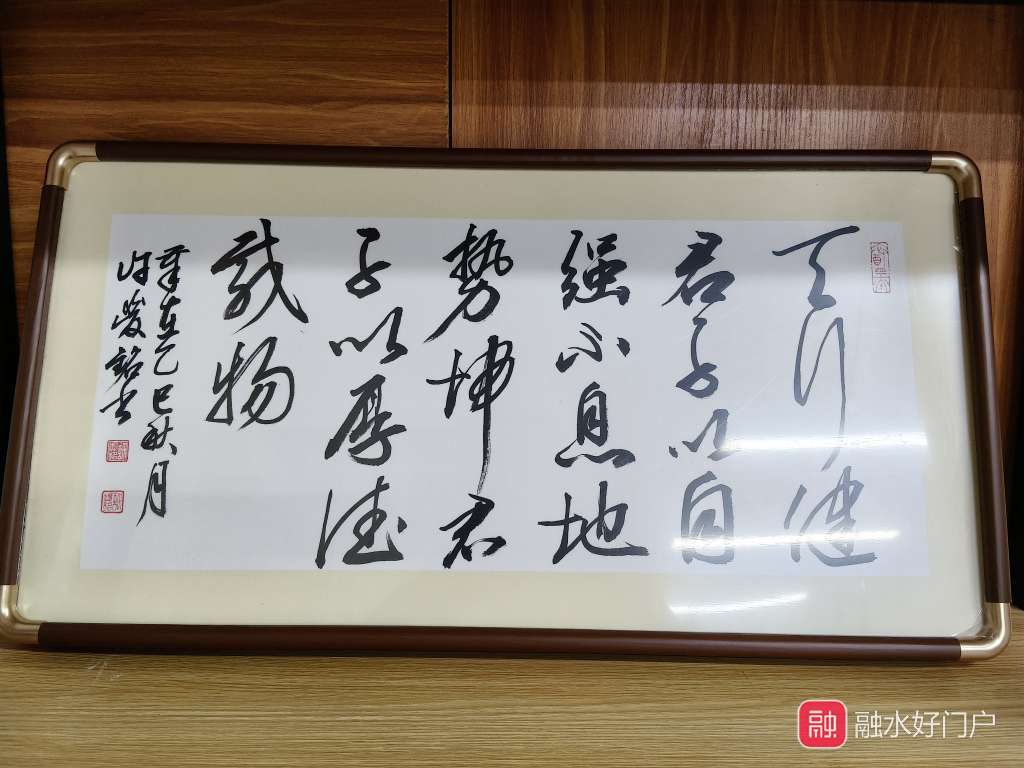 天行健
君子以自
强不息地
势坤君
子以厚德
载物
岁在乙巳秋月
融 融水好门户